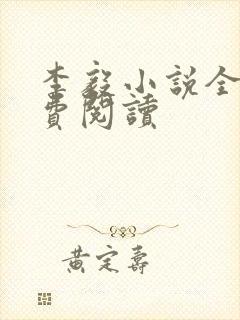 李毅小說全
費閱讀
黃定壽